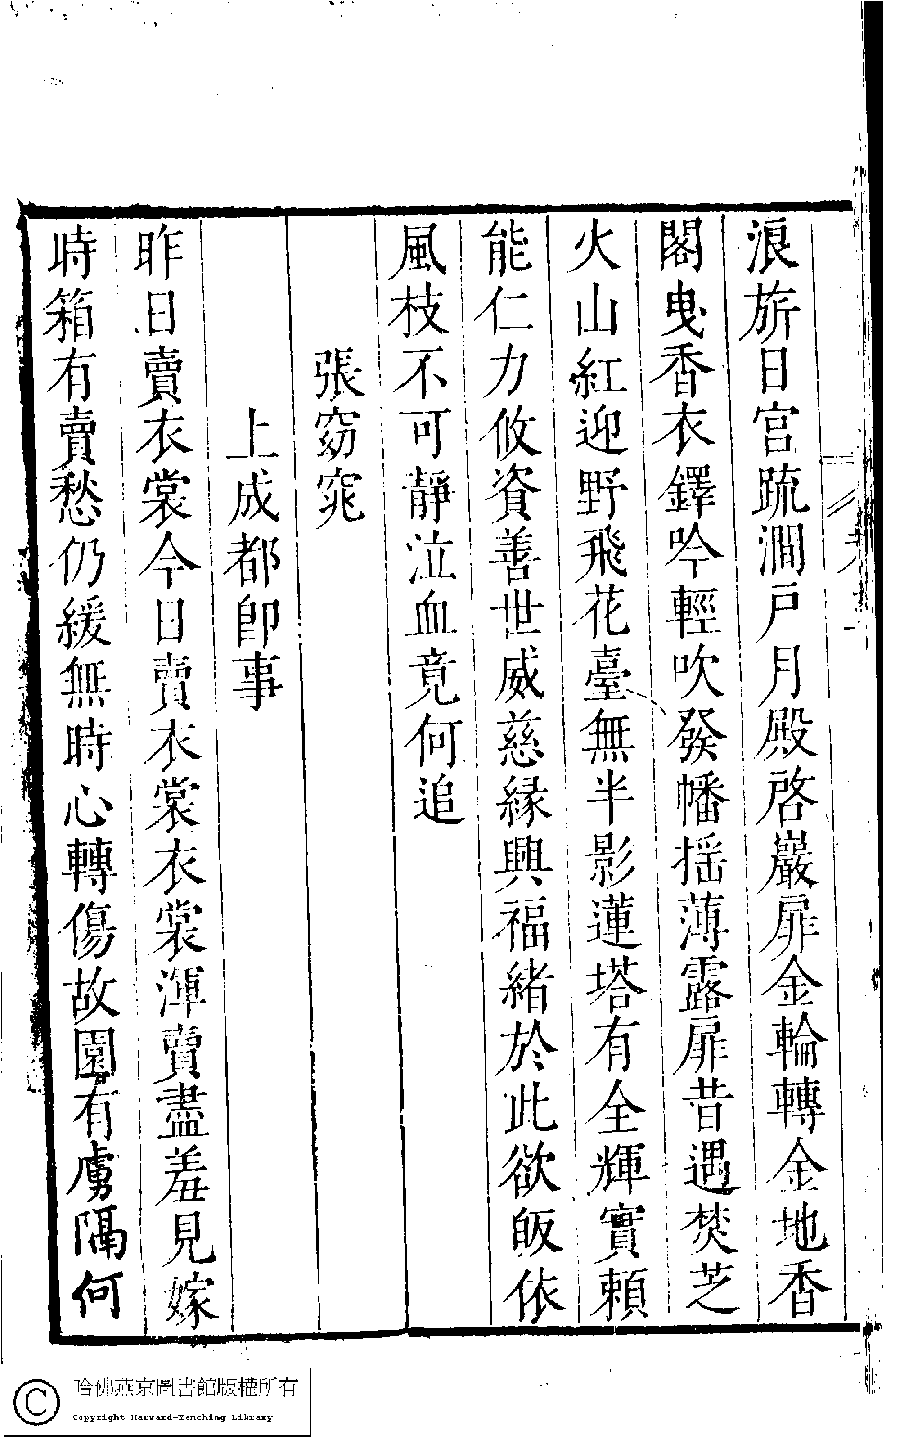 浪旂日宮疏澗戸月殿啓巖扉金輪轉金地香
閣曳香衣鐸吟輕吹發幡揺薄露扉昔遇焚芝
火山紅迎野飛花臺無半影蓮塔有全輝實賴
能仁力攸資善世威慈縁興福緒於此欲皈依
風枝不可靜泣血竟何追
張窈窕
上成都即事
昨日賣衣裳今日賣衣裳衣裳渾賣盡羞見嫁
時箱有賣愁仍緩無時心轉傷故園有虜隔何
哈佛燕京圖書館版權所有
Copyright Harvard-Yenching Library